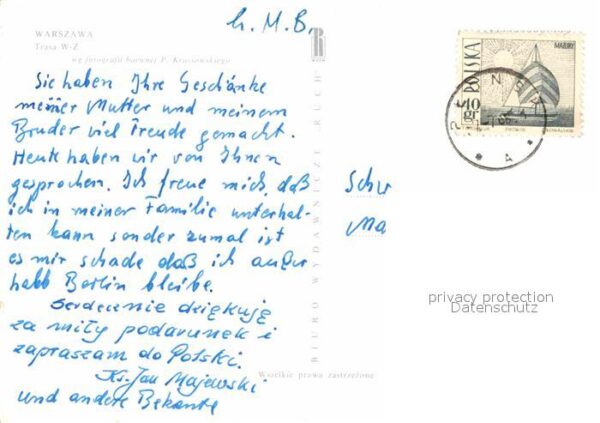 h. M. B.
WARSZAWA
Trasa W-Z
wg fotografii barwnej P. Krassowskiego
Sie haben Ihre Geschänke
meiner Mutter und meinem
Bruder viel Freude gemacht.
Heute haben wir von Ihnen
gesprochen. Ich freue mich, daß
ich in meiner Familie unterhal-
ten kann sonder zumal ist
es mir schade daß ich außer
halb Berlin bleibe.
Serdecznie dziękuję
za miły podarunek i
zapraszam do Polski.
Ks. Jan Majewski
und andere Bekante
BIURO WYDAWNICZE RUCH
Wszelkie prawa zastrzeżone
POLSKA
10 gr
4
Schw
Ma
privacy protection
Datenschutz